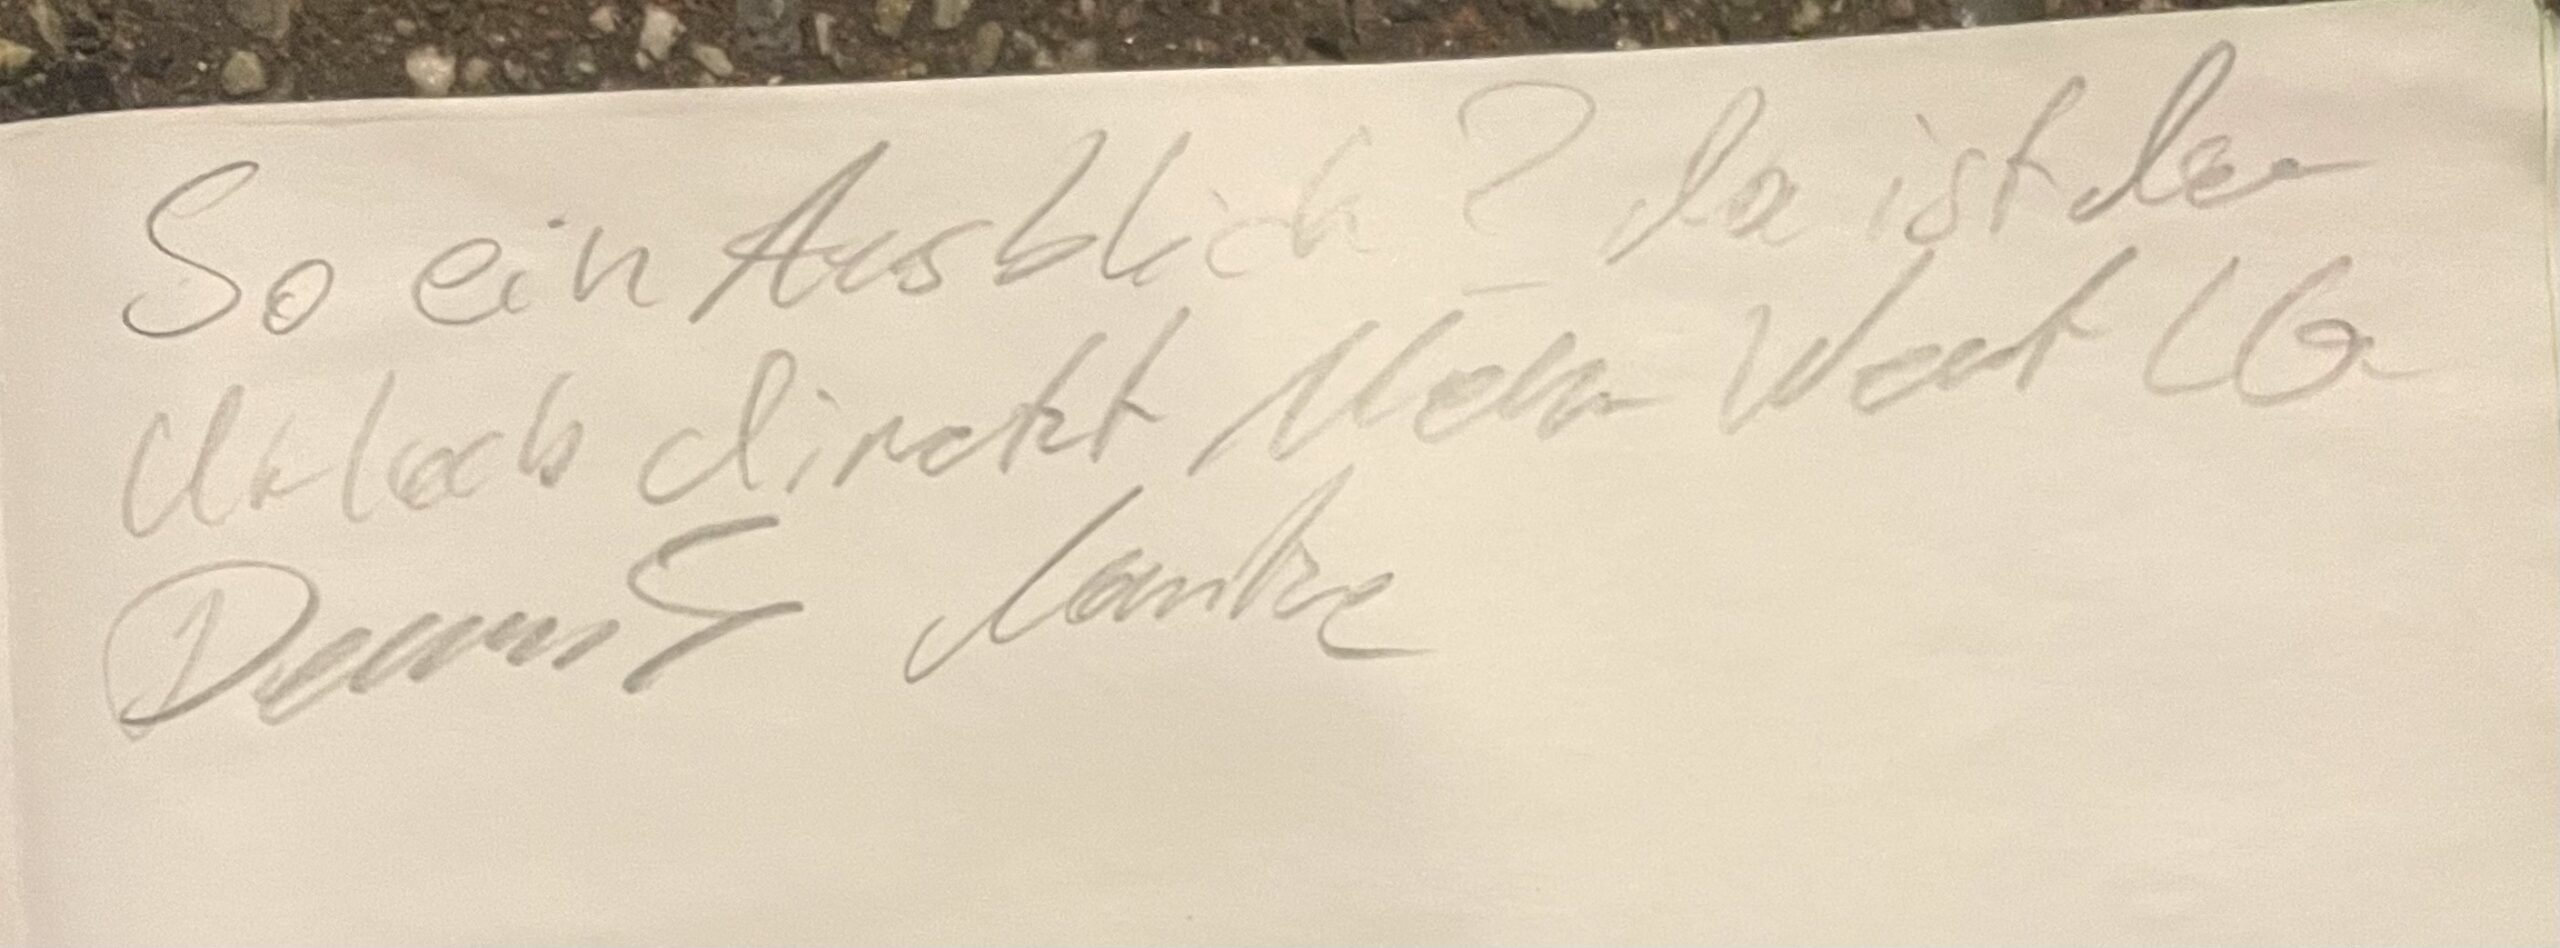 So ein Ausblick? da ist der
Urlaub direkt Mehr Wert LG
Dennis